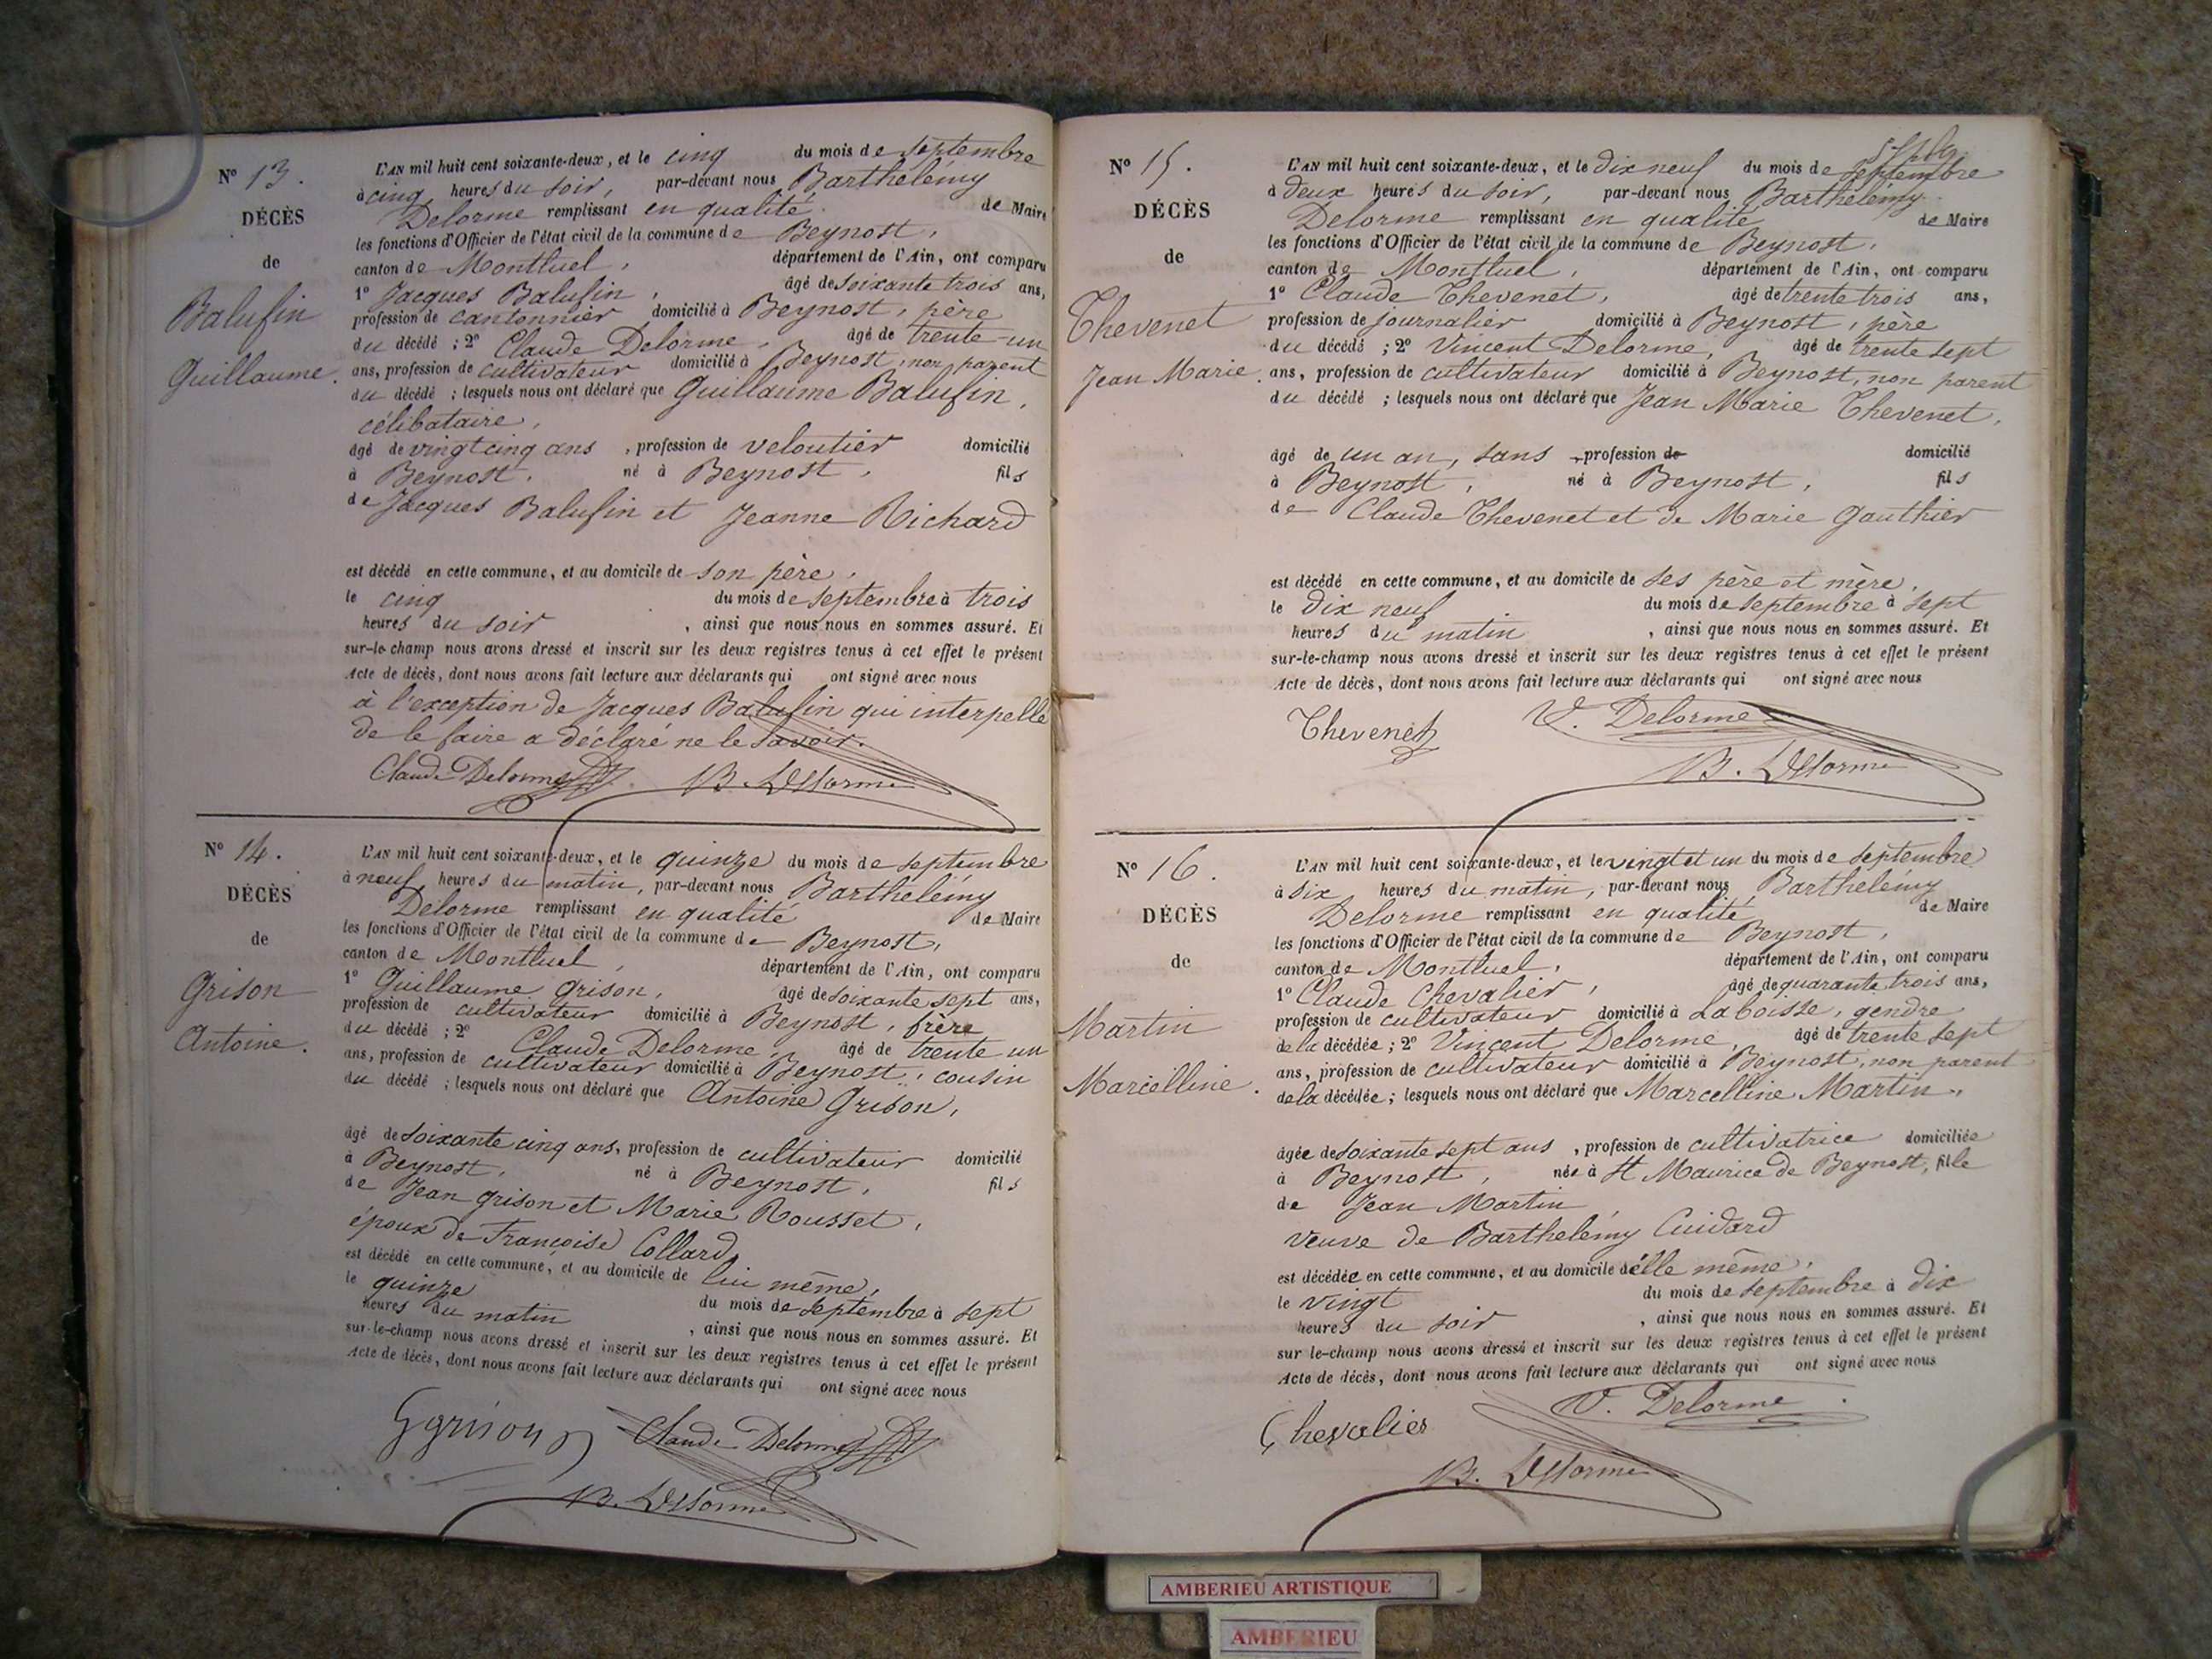 N° 13.
DÉCÈS
de
Balufin
Guillaume.
L'AN mil huit cent soixante-deux, et le cinq du mois de septembre
à cinq heures du soir, par-devant nous Barthélémy
Delorme remplissant en qualité de Maire
les fonctions d'Officier de l'état civil de la commune de Beynost,
canton de Montluel, département de l'Ain, ont comparu
1° Jacques Balufin, âgé de soixante trois ans,
profession de cantonnier domicilié à Beynost, père
du décédé ; 2° Claude Delorme, âgé de trente-un
ans, profession de cultivateur domicilié à Beynost, non parent
du décédé ; lesquels nous ont déclaré que Guillaume Balufin,
célibataire,
âgé de vingt cinq ans, profession de veloutier domicilié
à Beynost, né à Beynost, fils
de Jacques Balufin et Jeanne Richard
est décédé en cette commune, et au domicile de son père,
le cinq du mois de septembre à trois
heures du soir, ainsi que nous nous en sommes assuré. Et
sur-le-champ nous avons dressé et inscrit sur les deux registres tenus à cet effet le présent
Acte de décès, dont nous avons fait lecture aux déclarants qui ont signé avec nous
à l'exception de Jacques Balufin qui interpellé
de le faire a déclaré ne le savoir.
Claude Delorme B. Delorme
N° 14.
DÉCÈS
de
Grison
Antoine.
L'AN mil huit cent soixante-deux, et le quinze du mois de septembre
à neuf heures du matin, par-devant nous Barthélémy
Delorme remplissant en qualité de Maire
les fonctions d'Officier de l'état civil de la commune de Beynost,
canton de Montluel, département de l'Ain, ont comparu
1° Guillaume Grison, âgé de soixante sept ans,
profession de cultivateur domicilié à Beynost, frère
du décédé ; 2° Claude Delorme, âgé de trente un
ans, profession de cultivateur domicilié à Beynost, cousin
du décédé ; lesquels nous ont déclaré que Antoine Grison,
âgé de soixante cinq ans, profession de cultivateur domicilié
à Beynost, né à Beynost, fils
de Jean Grison et Marie Rousset,
époux de Françoise Collard,
est décédé en cette commune, et au domicile de lui même,
le quinze du mois de septembre à sept
heures du matin, ainsi que nous nous en sommes assuré. Et
sur-le-champ nous avons dressé et inscrit sur les deux registres tenus à cet effet le présent
Acte de décès, dont nous avons fait lecture aux déclarants qui ont signé avec nous
G grison Claude Delorme
B. Delorme
N° 15.
DÉCÈS
de
Thevenet
Jean Marie.
L'AN mil huit cent soixante-deux, et le dix neuf du mois de septembre
à deux heures du soir, par-devant nous Barthélémy
Delorme remplissant en qualité de Maire
les fonctions d'Officier de l'état civil de la commune de Beynost,
canton de Montluel, département de l'Ain, ont comparu
1° Claude Thevenet, âgé de trente trois ans,
profession de journalier domicilié à Beynost, père
du décédé ; 2° Vincent Delorme, âgé de trente sept
ans, profession de cultivateur domicilié à Beynost, non parent
du décédé ; lesquels nous ont déclaré que Jean Marie Thevenet,
âgé de un an, sans profession de domicilié
à Beynost, né à Beynost, fils
de Claude Thevenet et de Marie Gauthier
est décédé en cette commune, et au domicile de ses père et mère,
le dix neuf du mois de septembre à sept
heures du matin, ainsi que nous nous en sommes assuré. Et
sur-le-champ nous avons dressé et inscrit sur les deux registres tenus à cet effet le présent
Acte de décès, dont nous avons fait lecture aux déclarants qui ont signé avec nous
Thevenet V. Delorme
B. Delorme
N° 16.
DÉCÈS
de
Martin
Marcelline.
L'AN mil huit cent soixante-deux, et le vingt et un du mois de septembre
à six heures du matin, par-devant nous Barthélémy
Delorme remplissant en qualité de Maire
les fonctions d'Officier de l'état civil de la commune de Beynost,
canton de Montluel, département de l'Ain, ont comparu
1° Claude Chevalier, âgé de quarante trois ans,
profession de cultivateur domicilié à Laboisse, gendre
de la décédée ; 2° Vincent Delorme, âgé de trente sept
ans, profession de cultivateur domicilié à Beynost, non parent
de la décédée ; lesquels nous ont déclaré que Marcelline Martin,
âgée de soixante sept ans, profession de cultivatrice domiciliée
à Beynost, née à St Maurice de Beynost, fille
de Jean Martin
veuve de Barthélémy Cuidard
est décédée en cette commune, et au domicile d'elle même,
le vingt du mois de septembre à dix
heures du soir, ainsi que nous nous en sommes assuré. Et
sur le-champ nous avons dressé et inscrit sur les deux registres tenus à cet effet le présent
Acte de décès, dont nous avons fait lecture aux déclarants qui ont signé avec nous
Chevalier V. Delorme
B. Delorme
AMBERIEU ARTISTIQUE
AMBERIEU